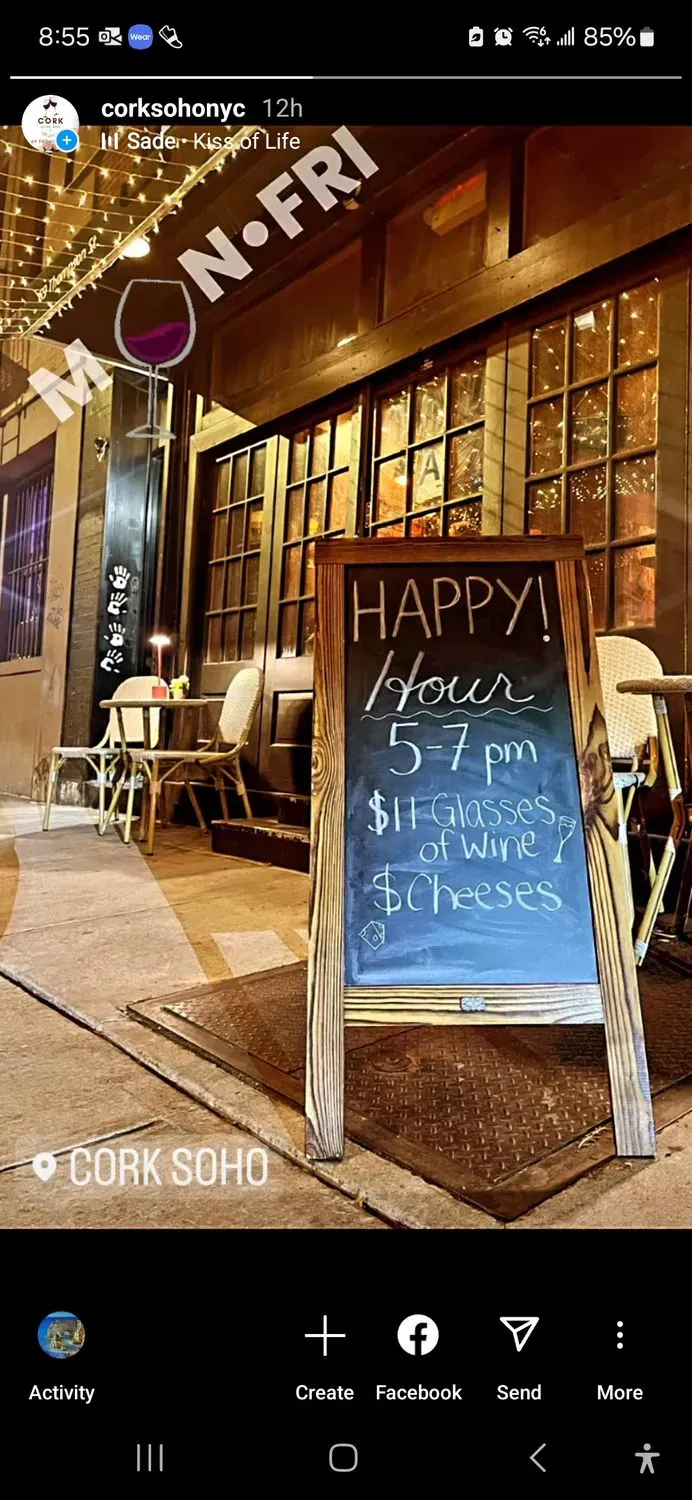 8:55
Wear
6
85%
corksohonyc 12h
CORK
Sade • Kiss of Life
M N•FRI
A
HAPPY!
Hour
5-7 pm
$11 Glasses
of Wine
$Cheeses
CORK SOHO
Activity
Create
Facebook
Send
More